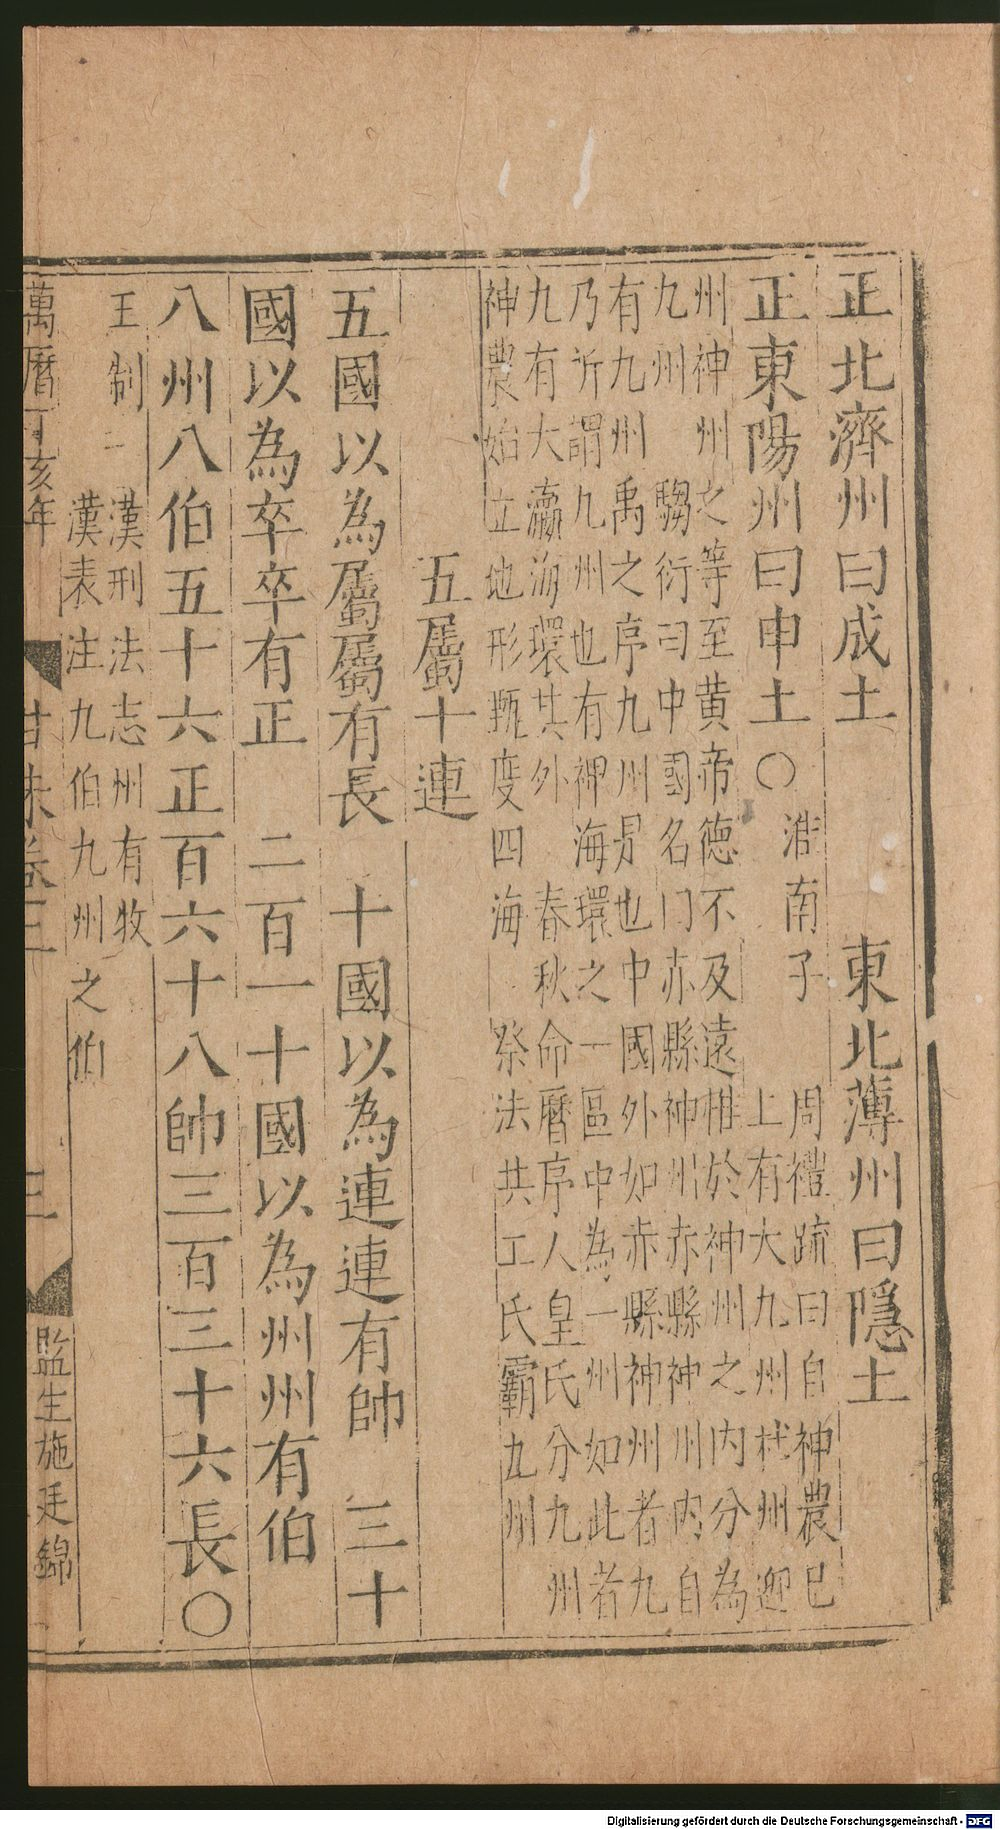 正北濟州曰成土　東北薄州曰隱土
正東陽州曰申土〇淮南子　周禮疏曰自神農已
上有大九州柱州迎
州神州之等至黄帝德不及遠惟於神州之內分為
九州　騶衍曰中國名曰赤縣神州赤縣神州內自
有九州禹之序九州是也中國外如赤縣神州者九
乃所謂九州也有裨海環之一區中為一州如此者
九有大瀛海環其外　春秋命曆序人皇氏分九州
神農始立地形甄度四海　祭法共工氏霸九州
五屬十連
五國以為屬屬有長　十國以為連連有帥　三十
國以為卒卒有正　二百一十國以為州州有伯
八州八伯五十六正百六十八帥三百三十六長〇
王制　漢刑法志州有牧
漢表注九伯九州之伯
萬曆丁亥年　卷三　三　監生施廷錦
Digitalisierung gefördert durch die Deutsche Forschungsgemeinschaft - DFG